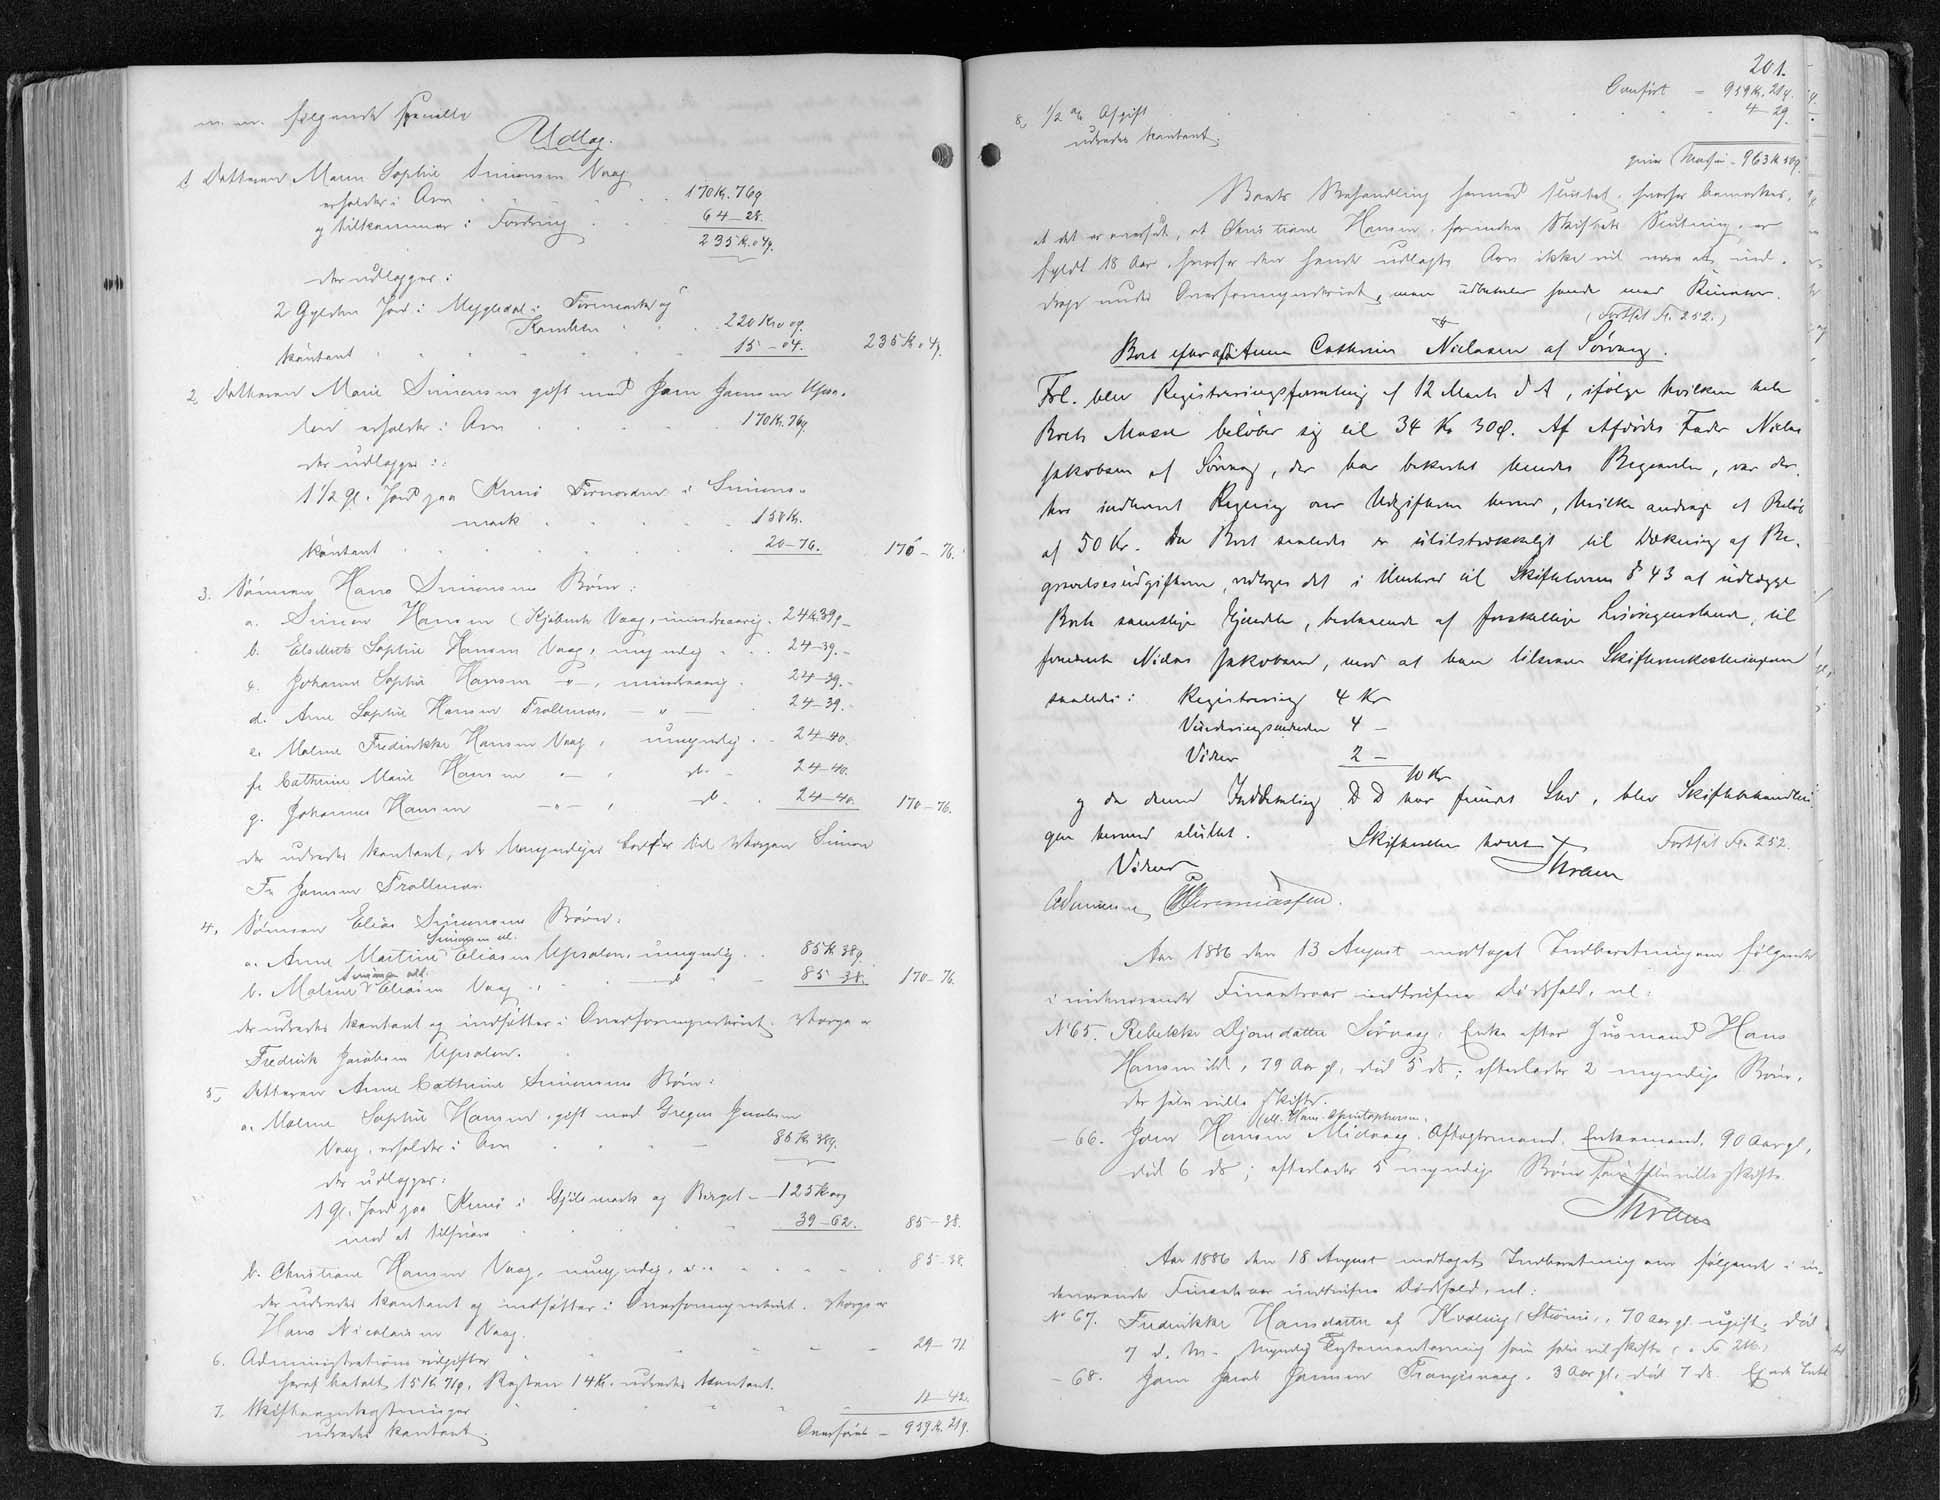 m. m. følgende specielle
Udlæg.
1. Datteren Maren Sophie Simonsen Vaag
erholder i Arv 170 Kr. 76 ø
og tilkommer i Fordring 64 – 28.
235 Kr. 04 ø.
der udlægges:
2 Gylden Jord i Mygledal i
220 Kr 00 ø.
kontant 15 – 04. 235 Kr 04 ø.
2. Datteren Marie Simonsen gift med Joen Joensen Upsa-
len erholder i Arv 170 Kr. 76 ø.
der udlægges:
1 1/2 Gl. Jord paa Kunø i Simons-
mark 150 Kr.
kontant 20 – 76. 170 – 76.
3. Sønnen Hans Simonsens Børn:
a. Simon Hansen Vaag, mindreaarig. 24 Kr. 39 ø
b. Elsebeth Sophie Hansen Vaag, umyndig 24 – 39.
c. Johanne Sophie Hansen – " –, mindreaarig. 24 – 39.
d. Anne Sophie Hansen Trøllenæs, – " – 24 – 39.
e. Maline Fredrikke Hansen Vaag, umyndig 24 – 40.
f. Cathrine Marie Hansen – " –, do. 24 – 40.
g. Johannes Hansen – " –, do. 24 – 40. 170 – 76.
der udredes kontant, de Umyndiges Lodder til Værgen Simon
Fr. Joensen Trøllenæs.
4. Sønnen Elias Simonsens Børn:
a. Anne Martine Eliasen Upsalen, umyndig 85 Kr 38 ø.
b. Maline Eliasen Vaag, do 85 – 38. 170 – 76.
der udredes kontant og indsættes i Overformynderiet. Værge er
Fredrik Jacobsen Upsalen.
5. Datteren Anne Cathrine Simonsens Børn:
a. Maline Sophie Hansen, gift med Joensen
Vaag, erholder i Arv 85 Kr 38 ø.
der udlægges:
1 Gl. Jord paa Kunø i og 125 Kr 00 ø
med at tilsvare 39 – 62. 85 – 38.
b. Christiane Hansen Vaag, umyndig, 85 – 38.
der udredes kontant og indsættes i Overformynderiet. Værge er
Hans Nicolaisen Vaag.
6. Administrations udgifter 29 – 71
heraf betalt 15 Kr 71 ø, Resten 14 Kr. udredes kontant.
7. Skifteomkostninger 11 – 42.
udredes kontant.
Overføres – 959 Kr. 21 ø.
201.
Overført – 959 Kr. 21 ø.
8. 1/2 % Afgift 4 – 29.
udredes kontant.
giver Massen – 963 Kr 50 ø.
Boets Behandling hermed sluttet, hvorfor bemærkes,
at det er oversét, at Christiane Hansen, forinden Skiftets Slutning, er
fyldt 18 Aar, hvorfor den hende udlagte Arv ikke vil være at ind-
drage under Overformynderiet, men udbetales hende med Kurator.
(Fortsat Fr. 252.)
Boet efter afd. Anna Cathrine Nielsen af Sørvaag.
Frl. blev Registreringsforretning af 12 Marts d A, ifølge hvilken hele
Boets Masse beløber sig til 34 Kr 30 ø. Af Afdødes Fader Niclas
Jakobsen af Sørvaag, der har bekostet hendes Begravelse, var der-
hos indkommet Regning over Udgifterne herved, hvilke andrage et Beløb
af 50 Kr. Da Boet saaledes er utilstrækkeligt til Dækning af Be-
gravelsesudgifterne, vedtoges det i Henhold til Skiftelovens § 43 at udlægge
Boets samtlige Ejendele, bestaaende af forskellige Løsøregenstande, til
fornævnte Niclas Jakobsen, mod at han tilsvarer Skifteomkostningerne
saaledes: Registrering 4 Kr
Vurderingsmænden 4 –
Vidner 2 –
10 Kr
og da denne Indbetaling D D har fundet Sted, blev Skiftebehandlin-
gen hermed sluttet. Skifteretten hævet Fortsat Fr. 252.
Vidner Thram
Aar 1886 den 13 August modtoges Indberetning om følgende
i indeværende Finantsaar indtrufne Dødsfald, nl:
No 65. Rebekke Djonsdatter Sørvaag, Enke efter Husmand Hans
Hansen ibd, 79 Aar gl, død 5 ds; efterlader 2 myndige Børn,
der selv ville skifte.
– 66. Joen Hansen Midvaag, Aftægtsmand, Enkemand, 90 Aar gl,
død 6 ds; efterlader 5 myndige Børn som selv ville skifte
Thram
Aar 1886 den 18 August modtoges Indberetning om følgende i in-
deværende Finantsaar indtrufne Dødsfald, nl:
No 67. Fredrikke Hansdatter af Kvalvig, Strømø, 70 Aar gl. ugift, død
7 d. M. Myndig Testamentarving som selv vil skifte
– 68. Joen Jacob Joensen Trangisvaag, 3 Aar gl. død 7 ds. Ejede Intet